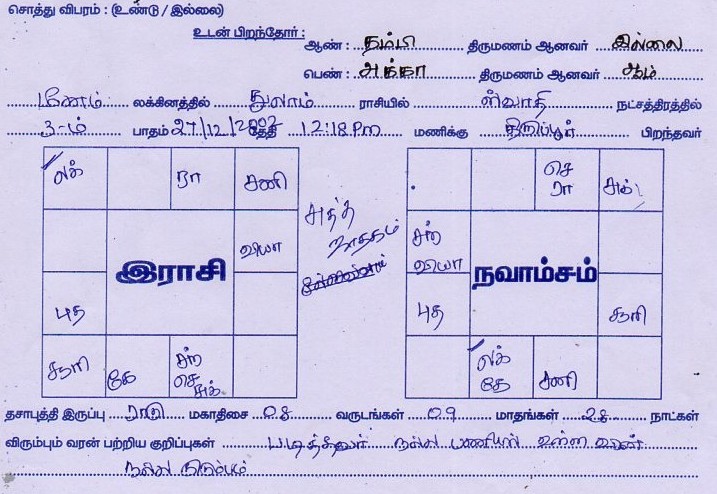 சொத்து விபரம் : (உண்டு / இல்லை)
உடன் பிறந்தோர் : ஆண் : தம்பி திருமணம் ஆனவர் இல்லை
பெண் : அக்கா திருமணம் ஆனவர் ஆம்
மீனம் லக்கினத்தில் துலாம் ராசியில் ஸ்வாதி நட்சத்திரத்தில்
3-ம் பாதம் 27/12/2002 தேதி 12:18 Pm மணிக்கு திருப்பூர் பிறந்தவர்
லக் ரா சனி
வியா
இராசி
புத
சூரி கே சந் செ சுக்
சுத்த ஜாதகம்
செ ரா சுக்
சந் வியா
நவாம்சம்
புத சூரி
லக் கே சனி
தசாபுத்தி இருப்பு ராகு மகாதிசை 08 வருடங்கள் 09 மாதங்கள் 28 நாட்கள்
விரும்பும் வரன் பற்றிய குறிப்புகள் படித்தவர் நல்ல பணியில் உள்ள வரன்
நல்ல குடும்பம்